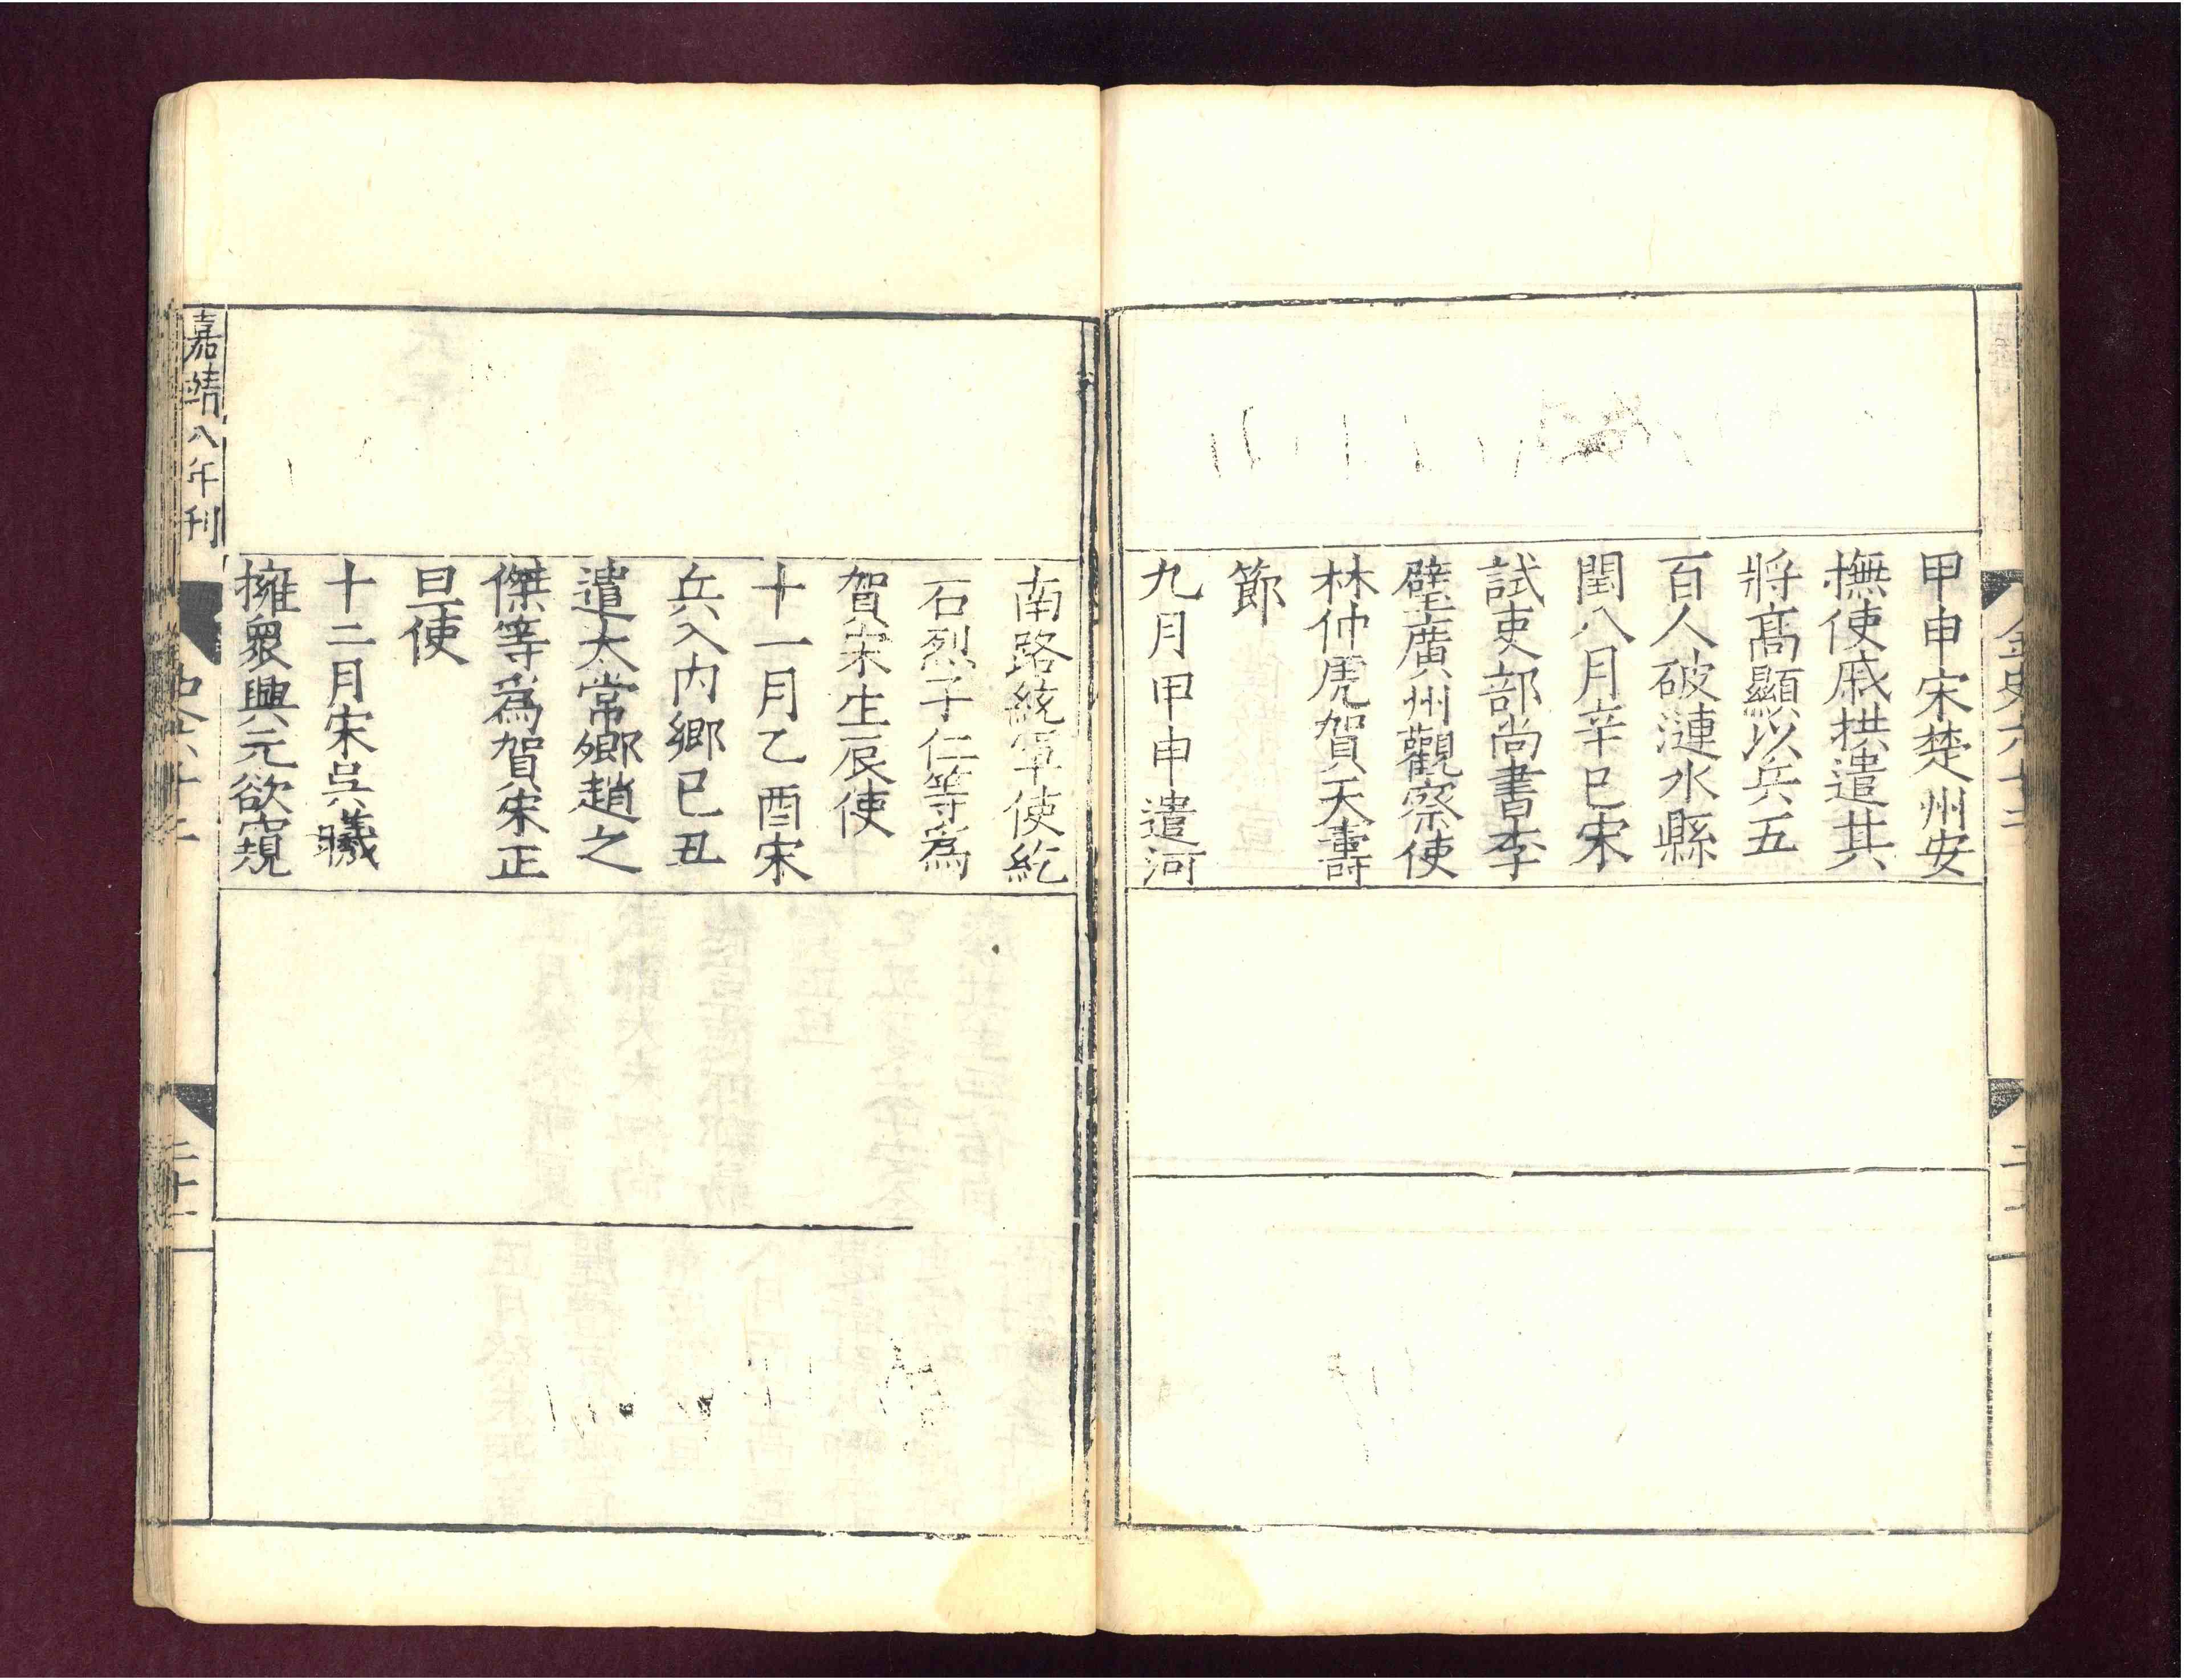 金史六十二
甲申宋楚州安
撫使戚拱遣其
將高顯以兵五
百人破漣水縣
閏八月辛巳宋
試吏部尚書李
壁廣州觀察使
林仲虎賀天壽
節
九月甲申遣河
南路統軍使紇
石烈子仁等爲
賀宋生辰使
十一月乙酉宋
兵入內鄉己丑
遣太常卿趙之
傑等爲賀宋正
旦使
十二月宋吳曦
擁衆興元欲窺
嘉靖八年刊
史六十二
二十一